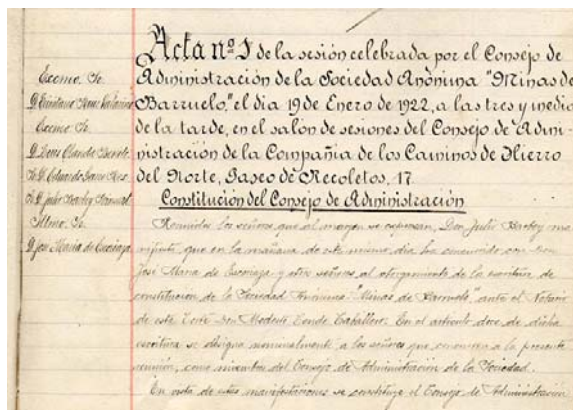 Acta nº 1 de la sesión celebrada por el Consejo de
Administración de la Sociedad Anónima "Minas de
Barruelo," el dia 19 de Enero de 1922, a las tres y media
de la tarde, en el salón de sesiones del Consejo de Admi-
nistración de la Compañia de los Caminos de Hierro
del Norte, Paseo de Recoletos, 17.
Constitución del Consejo de Administración
Excmo. Sr.
Excmo. Sr.
Iltmo. Sr.
D. José Maria de
Reunidos los señores que al margen se expresan, Don Julio ma-
nifiesta que en la mañana de este mismo dia ha concurrido con Don
José Maria de y otros señores, al otorgamiento de la escritura de
constitución de la Sociedad Anónima "Minas de Barruelo," ante el Notario
de esta Corte Don Modesto Conde Caballero. En el articulo doce de dicha
escritura se designa nominalmente a los señores que concurren a la presente
reunión, como miembros del Consejo de Administración de la Sociedad.
En vista de estas manifestaciones se constituye el Consejo de Administración